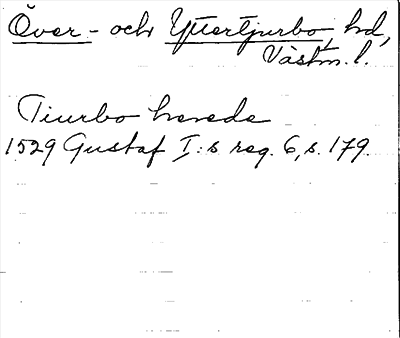 Över- och Yttertjurbo, hd,
Västm. l.
Tiurbo herede
1529 Gustaf I:s reg. 6, s. 179.